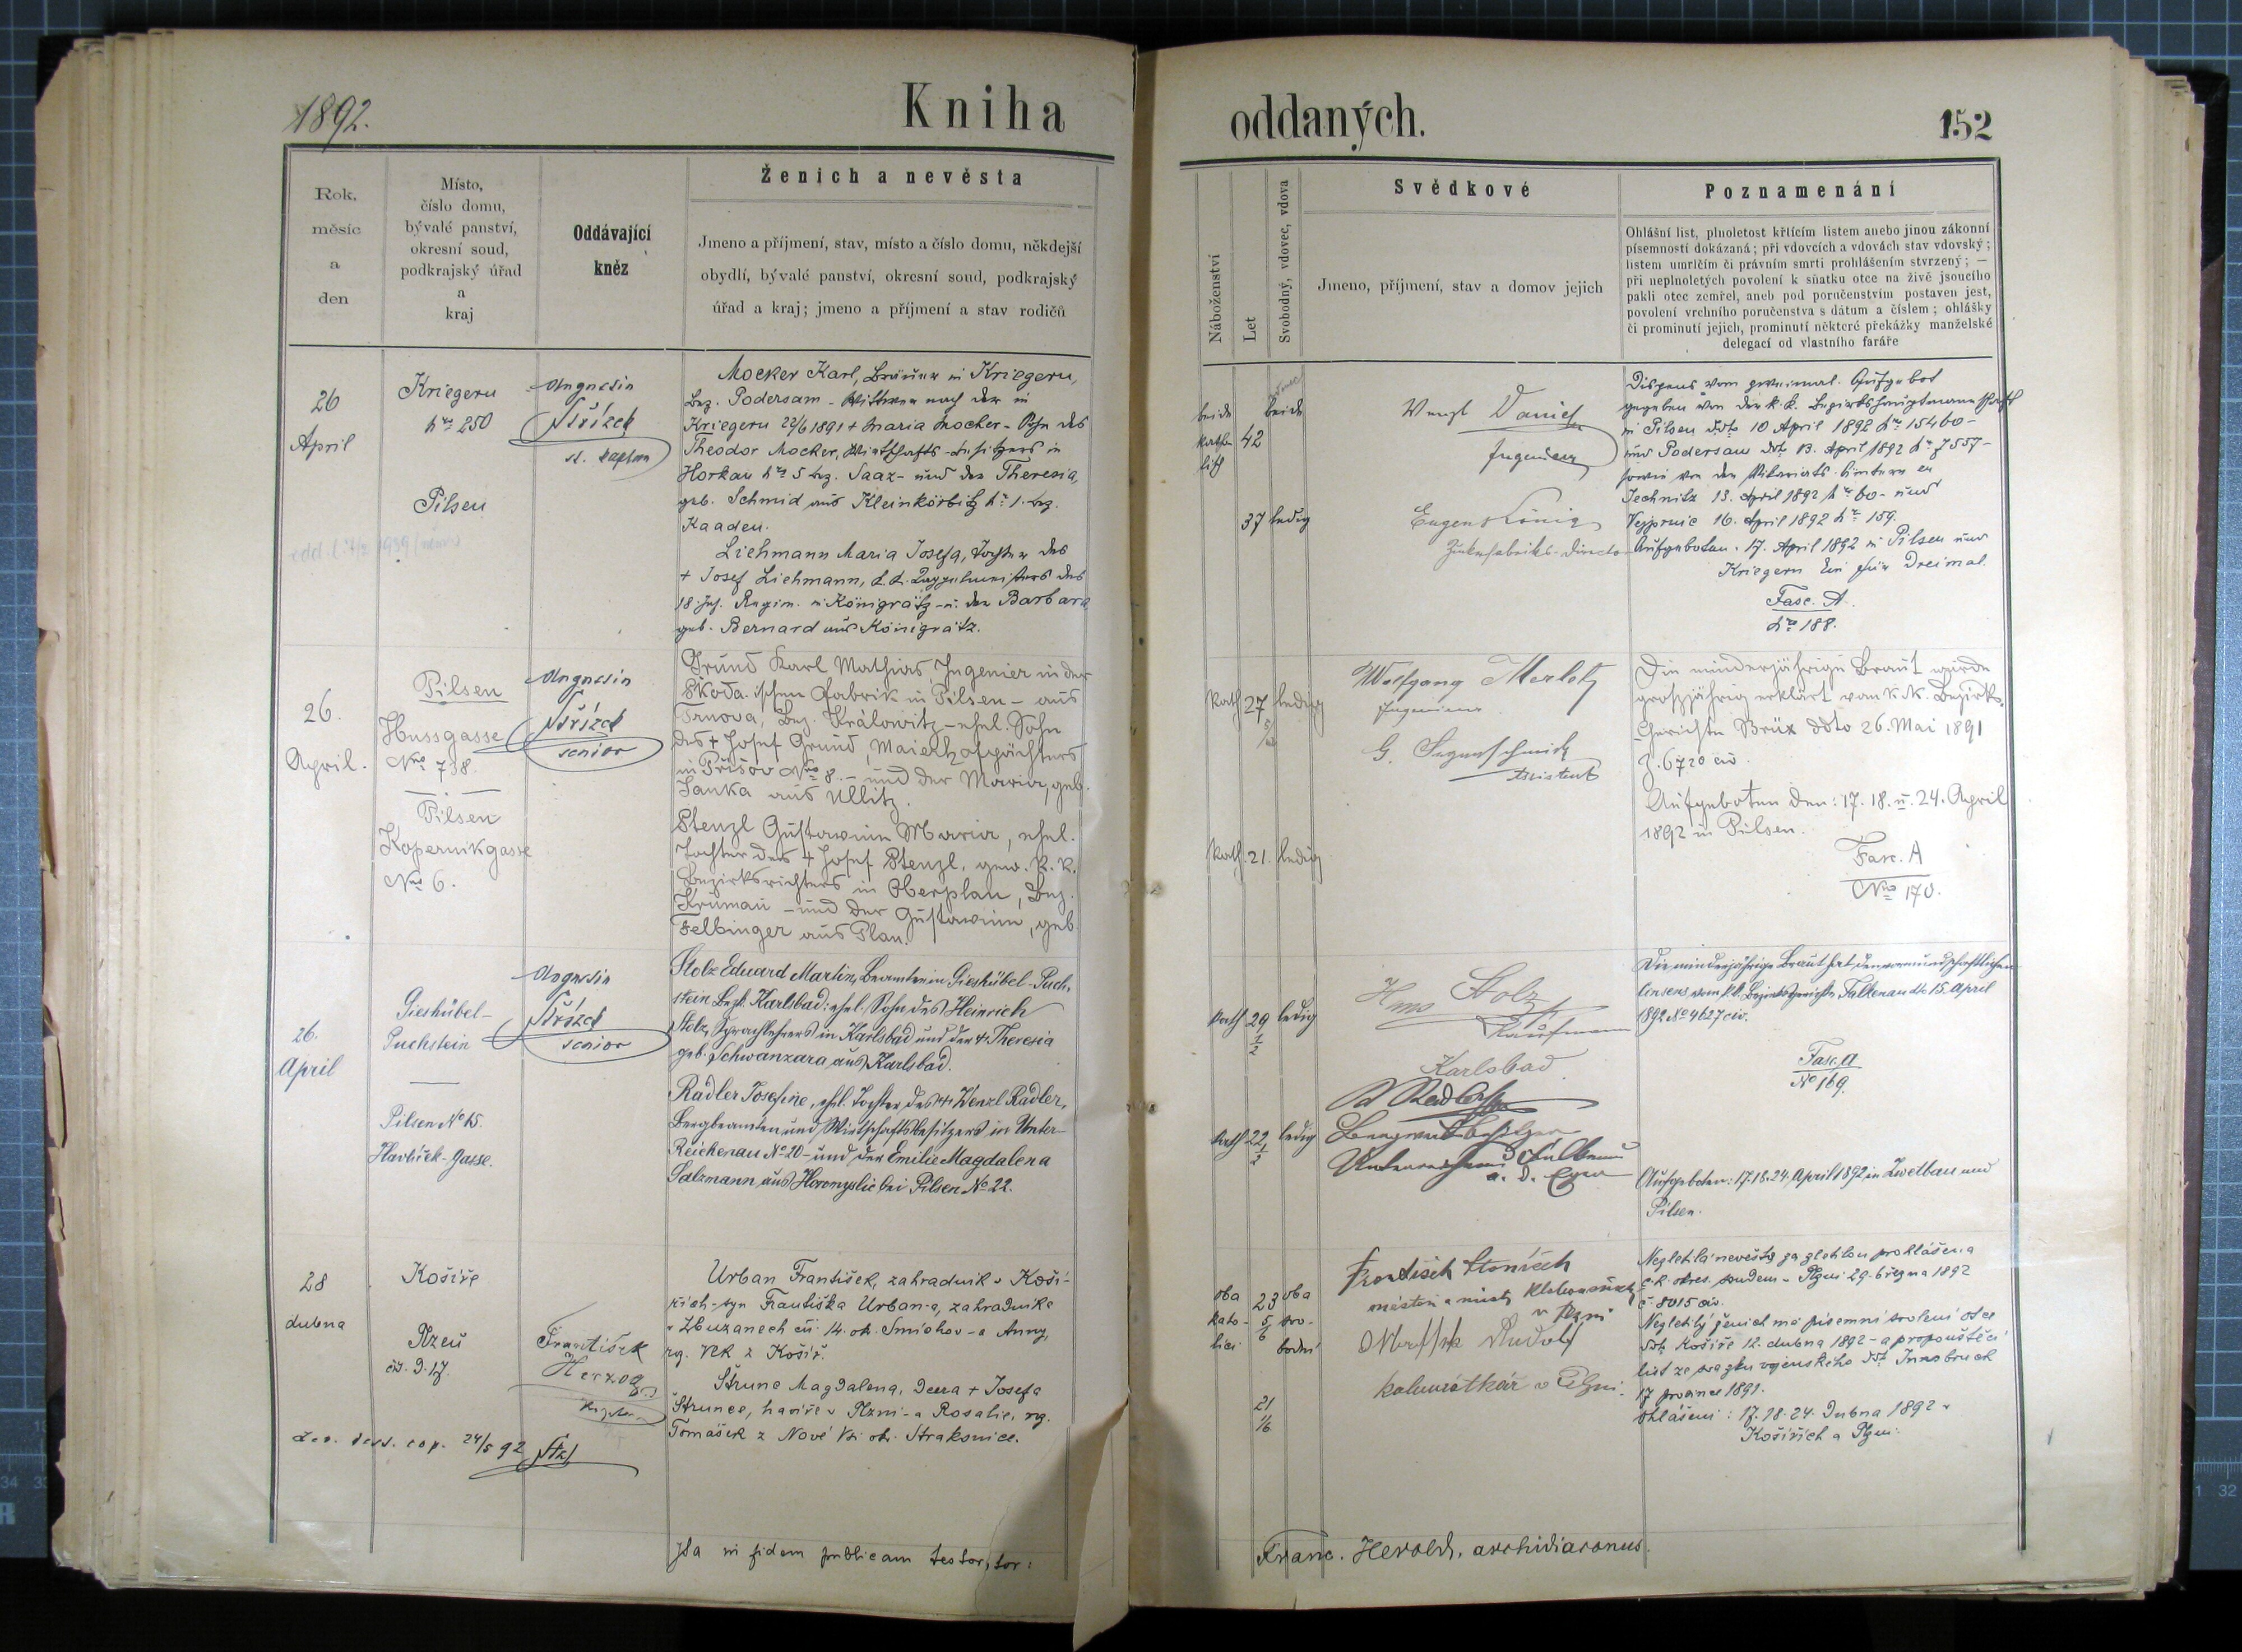 1892.
Kniha
oddaných.
152
Rok,
měsíc
a
den
Místo,
číslo domu,
bývalé panství,
okresní soud,
podkrajský úřad
a
kraj
Oddávající
kněz
Ženich a nevěsta
Jmeno a příjmení, stav, místo a číslo domu, někdejší
obydlí, bývalé panství, okresní soud, podkrajský
úřad a kraj; jmeno a příjmení a stav rodičů
Náboženství
Let
Svobodný, vdovec, vdova
Svědkové
Jmeno, příjmení, stav a domov jejich
Poznamenání
Ohlášní list, plnoletost křtícím listem anebo jinou zákonní
písemností dokázaná; při vdovcích a vdovách stav vdovský;
listem umrlčím či právním smrti prohlášením stvrzený; —
při neplnoletých povolení k sňatku otce na živě jsoucího
pakli otec zemřel, aneb pod poručenstvím postaven jest,
povolení vrchního poručenstva s dátum a číslem; ohlášky
či prominutí jejich, prominutí některé překážky manželské
delegací od vlastního faráře
26
April
Kriegern
Nro 250
Pilsen
Střízek
st. kaplan
Mocker Karl, Bräuer in Kriegern,
Bez. Podersam - Wittwer nach der in
Kriegern 22/6 1891 + Maria Mocker - Sohn des
Theodor Mocker, Wirtschafts-besitzers in
Horkau Nro 5 Bez. Saaz - und der Theresia,
geb. Schmid aus Kleinkörbitz Nr. 1. Bez.
Kaaden.
Liehmann Maria Josefa, Tochter des
+ Josef Liehmann, k. k. Zeugsmeisters des
18 Inf. Regim. in Königrätz - u. der Barbara
geb. Bernard aus Königrätz.
beide
katho-
lisch
42
beide
37 ledig
Wenzl Daniel
Ingenieur
Eugen König
Zuckerfabriks-Director
Dispens vom zweimal. Aufgebot
gegeben von der k. k. Bezirkshauptmannschaft
in Pilsen ddto 10 April 1892 Nro 15460 -
und Podersam ddto 13. April 1892 Nr 7557 -
sowie von den Vikariats-Ämtern zu
Jechnitz 13. April 1892 Nro 60 - und
Vejprnic 16. April 1892 Nro 159.
Aufgeboten: 17. April 1892 in Pilsen und
Kriegern Ein für Dreimal.
Fasc. A.
Nro 188.
26.
April.
Pilsen
Hussgasse
Nro 738.
Pilsen
Kopernikgasse
Nro 6.
Střízek
senior
Grund Karl Mathias, Ingenier in der
Škoda'schen Fabrik in Pilsen - aus
Trnova, Bez. Kralowitz - ehel. Sohn
des + Josef Grund, Maierhofpächters
in Příšov Nro 8. - und der Maria, geb.
Janka aus Ullitz.
Stenzl Gustavine Maria, ehel.
Tochter des + Josef Stenzl, gew. k. k.
Bezirksrichters in Oberplan, Bez.
Krumau - und der Gustavine, geb.
Felbinger aus Plan.
Kath. 27 ledig
Kath. 21. ledig
Wolfgang Merletz
Ingenieur
G. Segenschmid
Assistent
Die minderjährige Braut wurde
grossjährig erklärt vom k. k. Bezirks-
Gerichte Brüx ddto 26. Mai 1891
Z. 6720 civ.
Aufgeboten den: 17. 18. u. 24. April
1892 in Pilsen.
Fasc. A
Nro 170.
26.
April
Gieshübel-
Puchstein
Pilsen No 15.
Havliček-Gasse.
Střízek
senior
Stolz Eduard Martin, Beamter in Gieshübel-Puch-
stein Bezk. Karlsbad: ehel. Sohn des Heinrich
Stolz, Sprachlehrers in Karlsbad und der + Theresia
geb. Schwanzara aus Karlsbad.
Radler Josefine, ehel. Tochter des + Wenzl Radler,
Bergbeamten und Wirtschaftsbesitzers in Unter-
Reichenau No 20 - und der Emilie Magdalena
Salzmann aus Horomyslic bei Pilsen No 22.
Kath 29 1/2 ledig
Kath 22 1/2 ledig
Stolz
Kaufmann
Karlsbad
a. d. Eger
Die minderjährige Braut hat den vormundschaftlichen
Consens vom k. k. Bezirksgerichte Falkenau dto 15. April
1892 No 4627 civ.
Fasc. A
No 169.
Aufgeboten: 17. 18. 24. April 1892 in Zwetbau und
Pilsen.
28
dubna
Košíře
Plzeň
čís. 9. 17.
František
Herzog
Urban František, zahradník v Koší-
řích - syn Františka Urban-a, zahradníka
v Zbuzanech čís. 14. ok. Smíchov - a Anny,
roz. Vlk z Košíř.
Štrunc Magdalena, dcera + Josefa
Štrunce, havíře v Plzni - a Rosalie, roz.
Tomášek z Nové Vsi ok. Strakonice.
24/5 92
oba
kato-
líci
23 5/6
oba
svo-
bodní
21 1/6
František
v Plzni
Rudolf
v Plzni.
Nezletilá nevěsta za zletilou prohlášena
c. k. okres. soudem v Plzni 29. března 1892
č 8015 civ.
Nezletilý ženich má písemní svolení otce
ddto Košíře 12. dubna 1892 - a propouštěcí
list ze svazku vojenského ddto Innsbruck
17 prosince 1891.
Ohlášeni: 17. 18. 24. Dubna 1892 v
Košířích a Plzni.
Ita in fidem publicam testor,
Franc. Herold, archidiaconus.